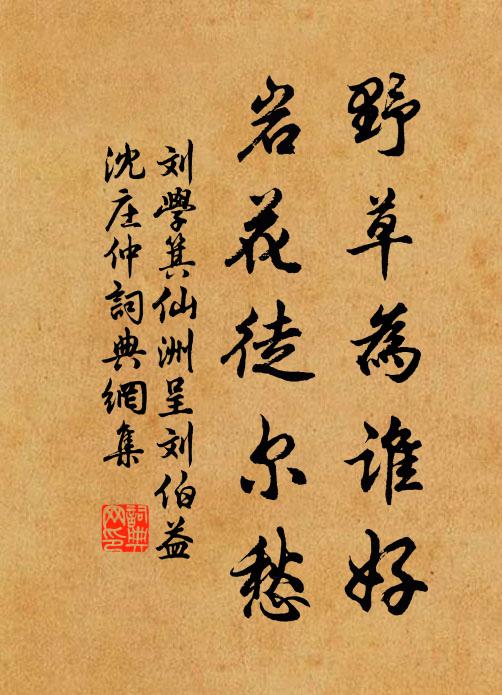 野草為誰好
岩花徒尔愁
刘學箕仙洲呈刘伯益
沈庄仲詞典網集
詞典网印